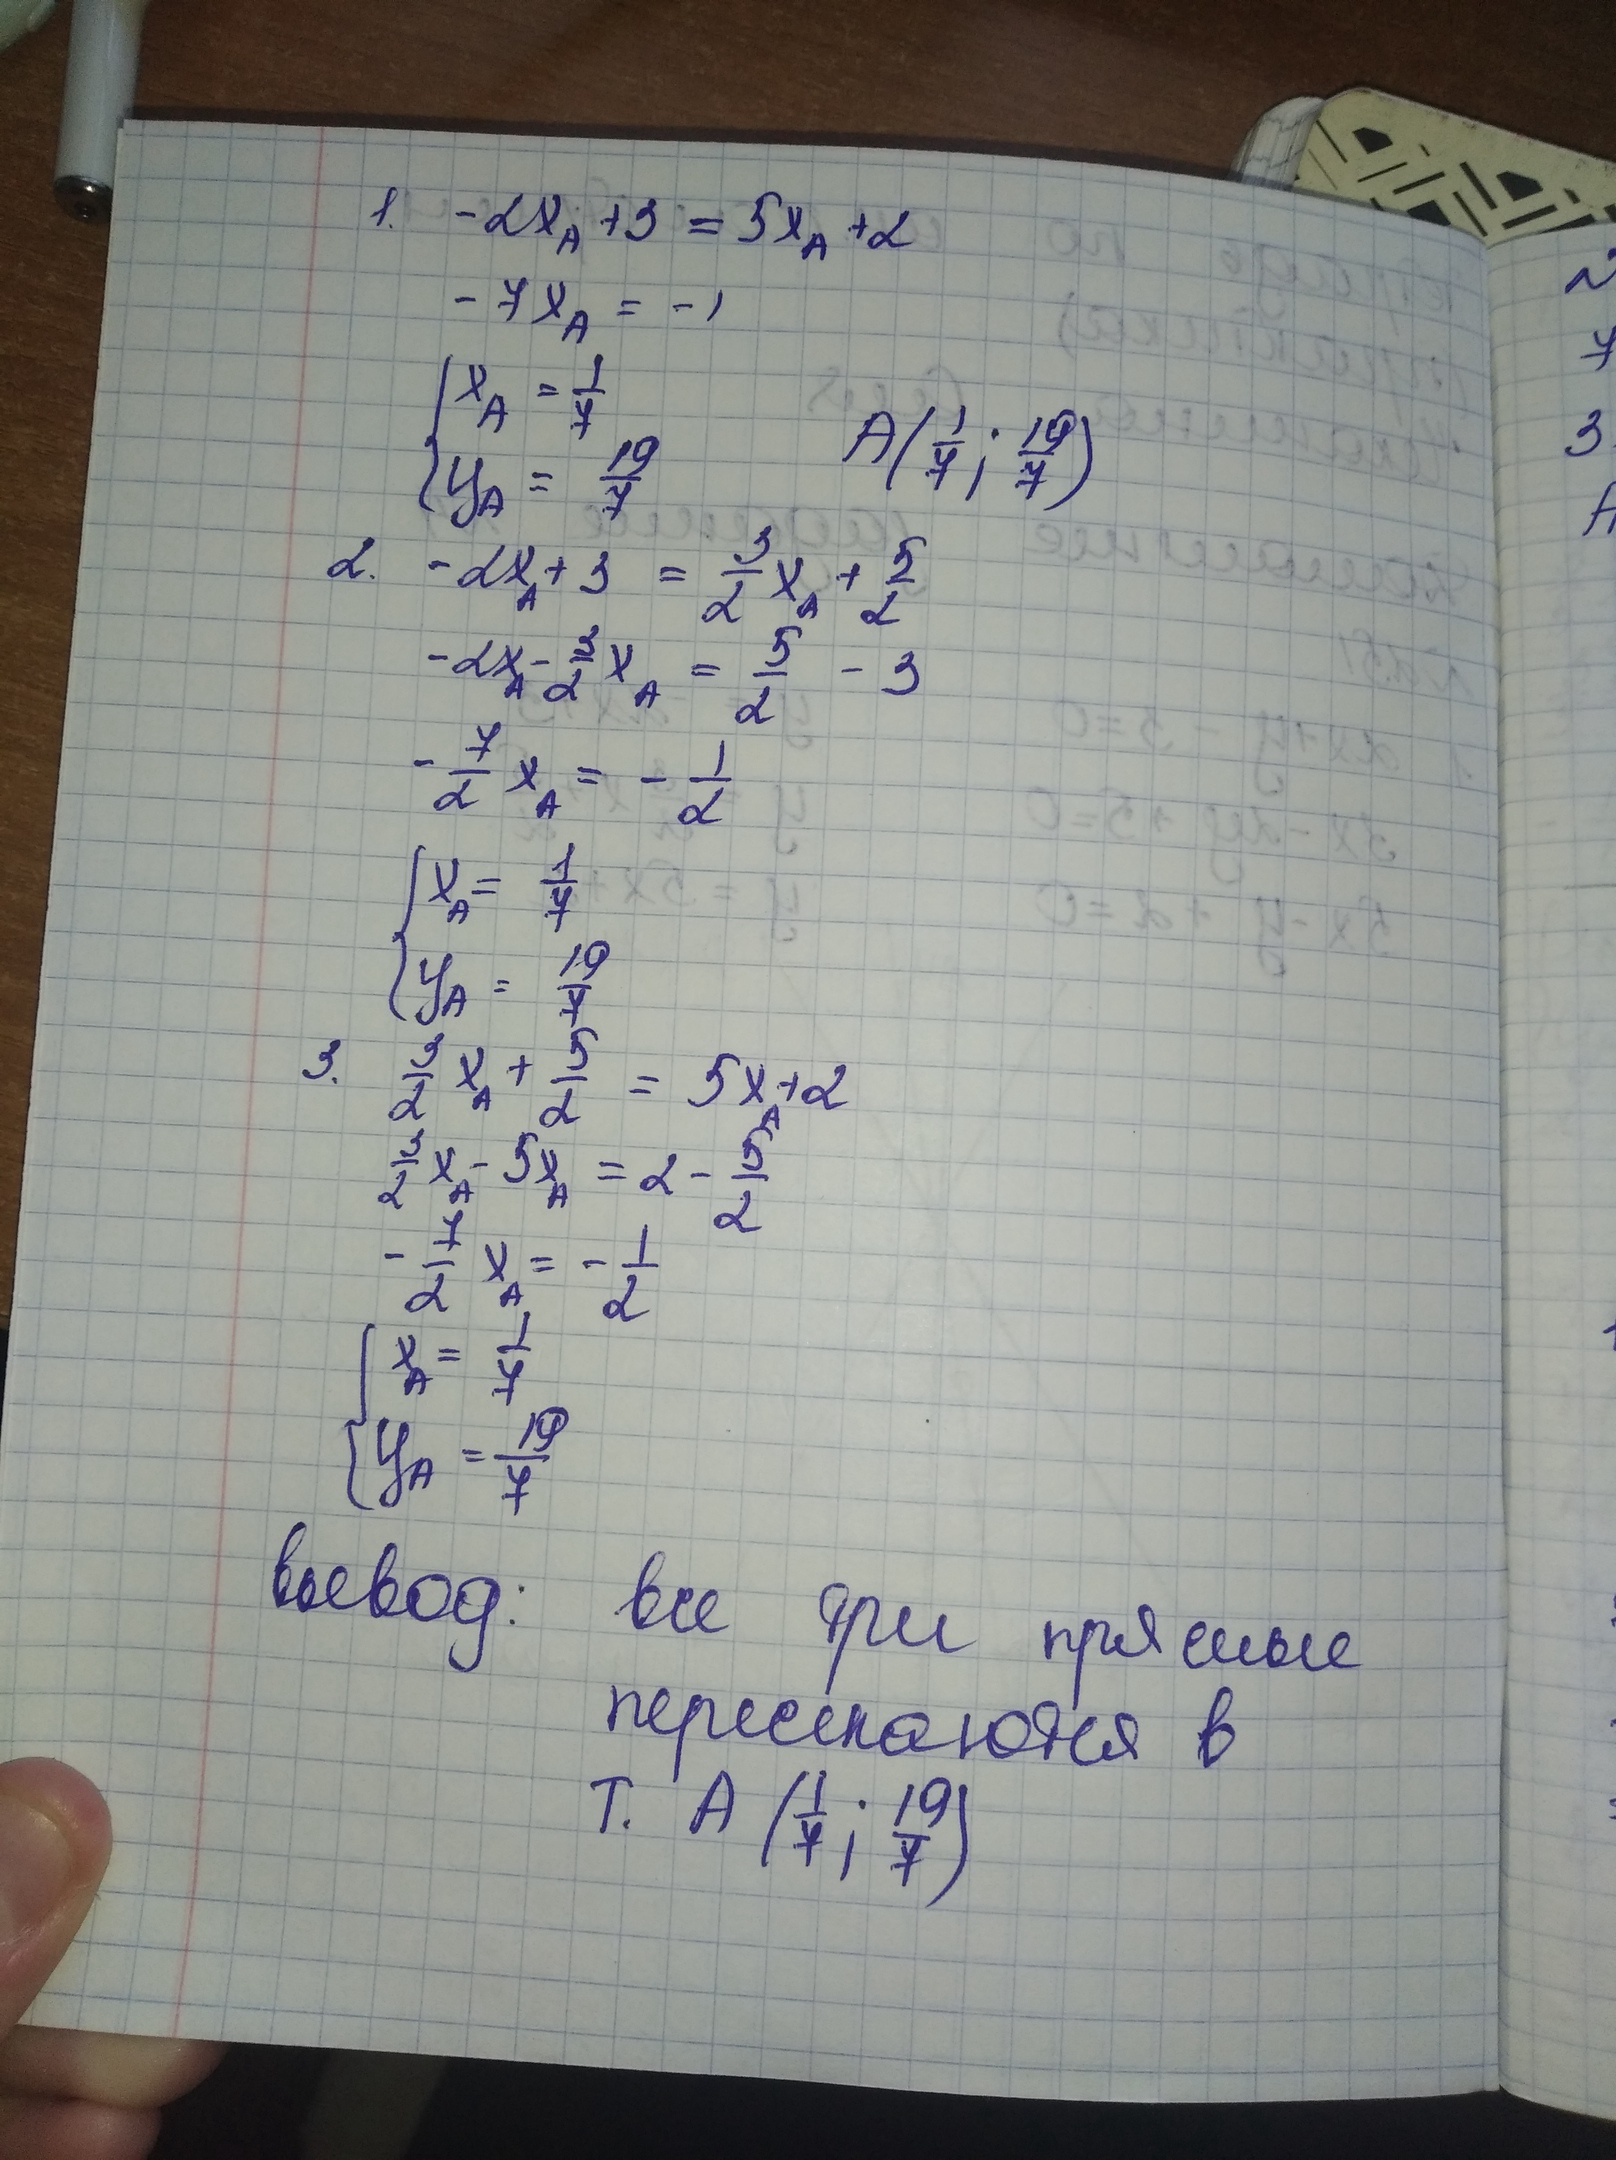 1. -2x_A + 3 = 5x_A + 2
-7x_A = -1
x_A = 1/7
y_A = 19/7 A(1/7; 19/7)
2. -2x_A + 3 = 3/2 x_A + 5/2
-2x_A - 3/2 x_A = 5/2 - 3
-7/2 x_A = -1/2
x_A = 1/7
y_A = 19/7
3. 3/2 x_A + 5/2 = 5x_A + 2
3/2 x_A - 5x_A = 2 - 5/2
-7/2 x_A = -1/2
x_A = 1/7
y_A = 19/7
вывод: все три прямые
пересекаются в
т. A (1/7; 19/7)